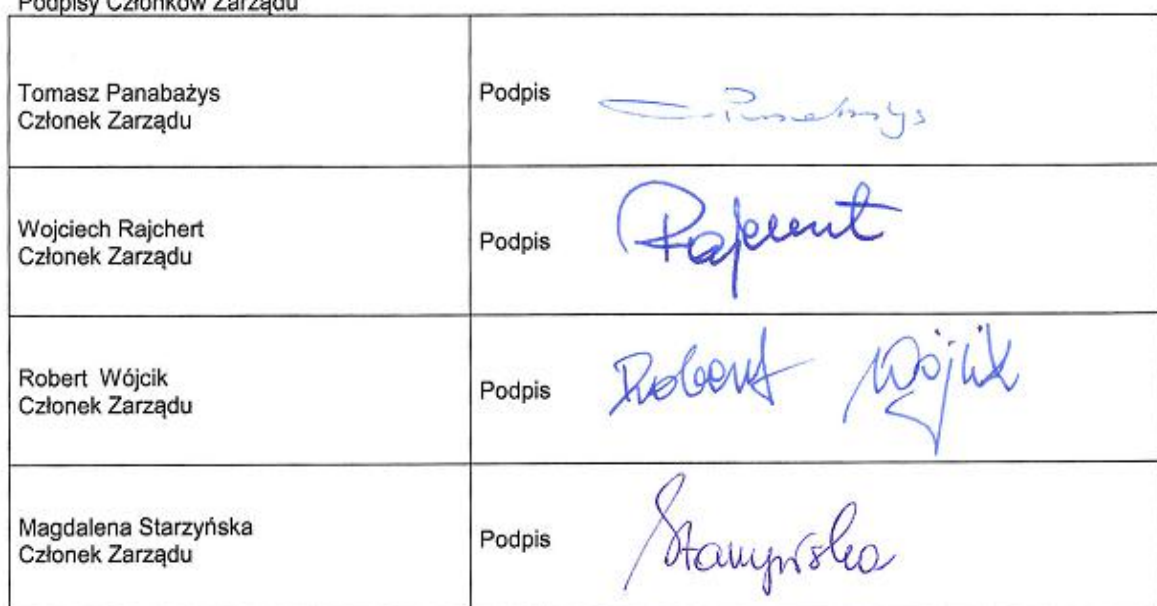 Podpisy Członków Zarządu
Tomasz Panabażys
Członek Zarządu
Podpis
Wojciech Rajchert
Członek Zarządu
Podpis
Rajchert
Robert Wójcik
Członek Zarządu
Podpis
Robert Wójcik
Magdalena Starzyńska
Członek Zarządu
Podpis
Starzyńska